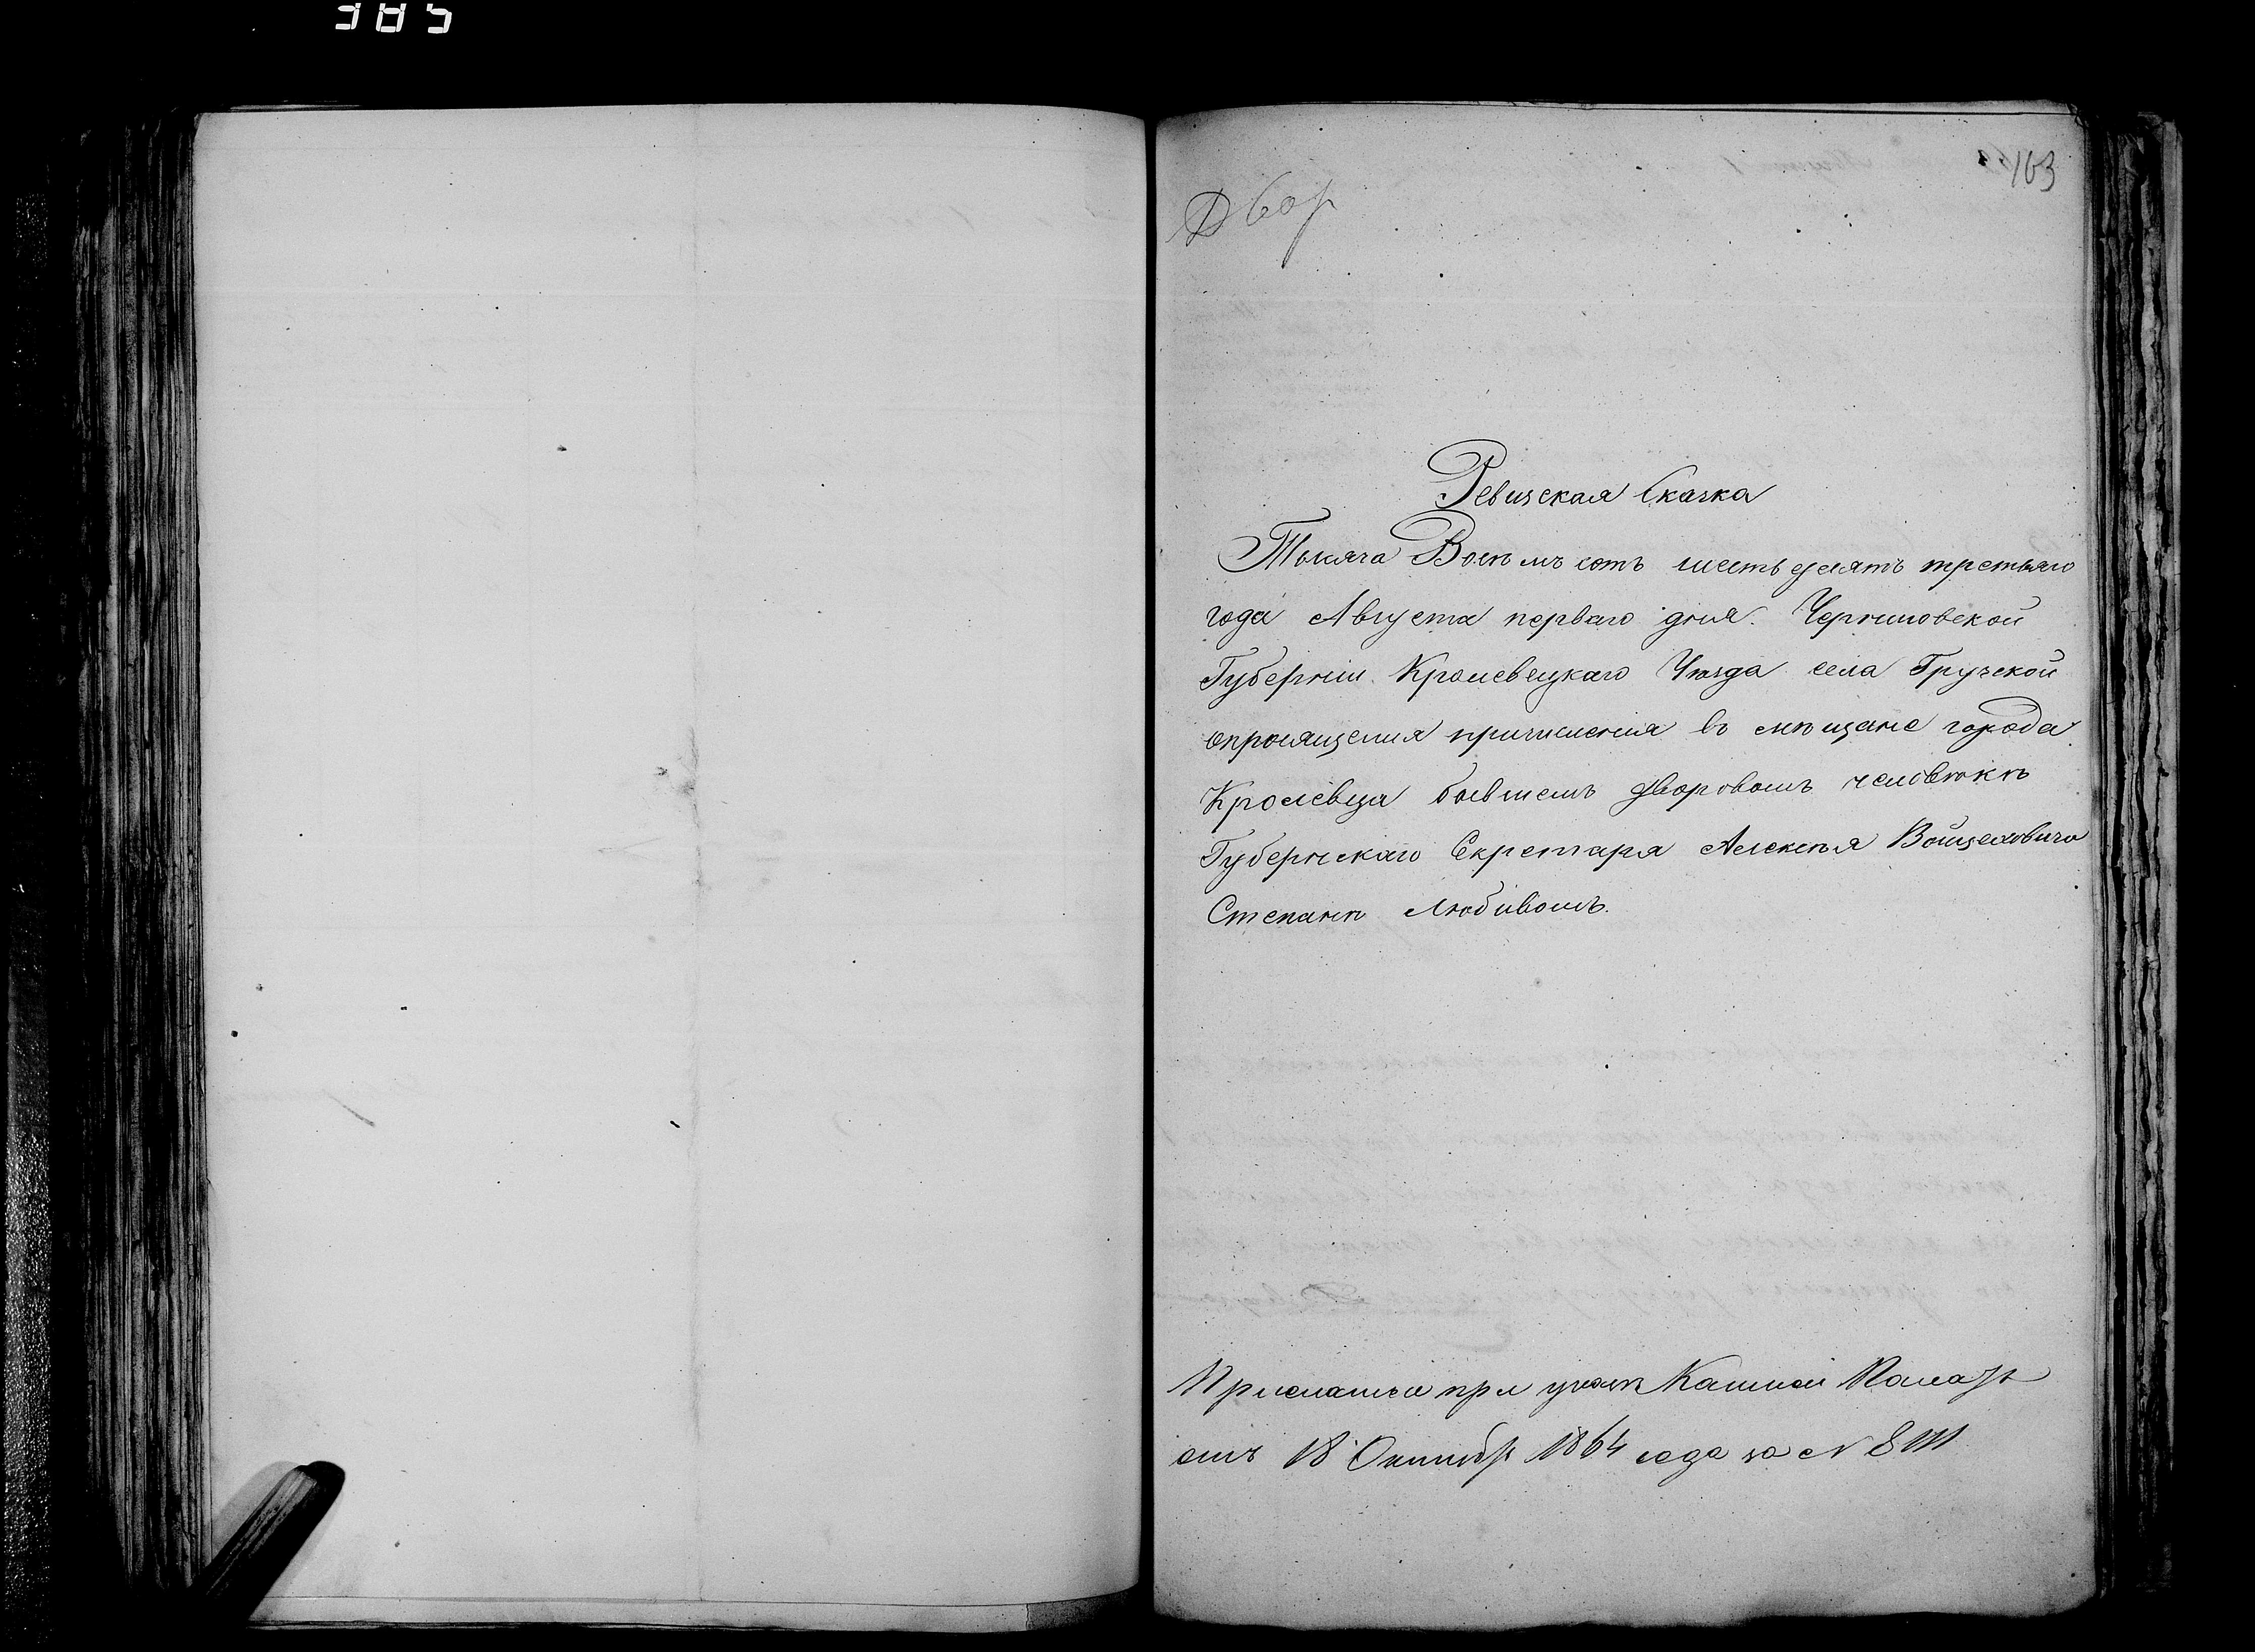 385
163
Двор
Ревизская Сказка
Тысяча Восемъ сотъ шестьдесятъ третьяго
года Августа перваго дня. Черниговской
Губерніи Кролевецкаго Уѣзда села Грузской
опросящемся причисленія въ мѣщане города
Кролевца бывшемъ дворовомъ человѣкѣ
Губернскаго Секретаря Алексѣя Войцеховича
Степанѣ Любивомъ.
При указѣ Казенной Палаты
отъ 18 Октября 1864 года за №